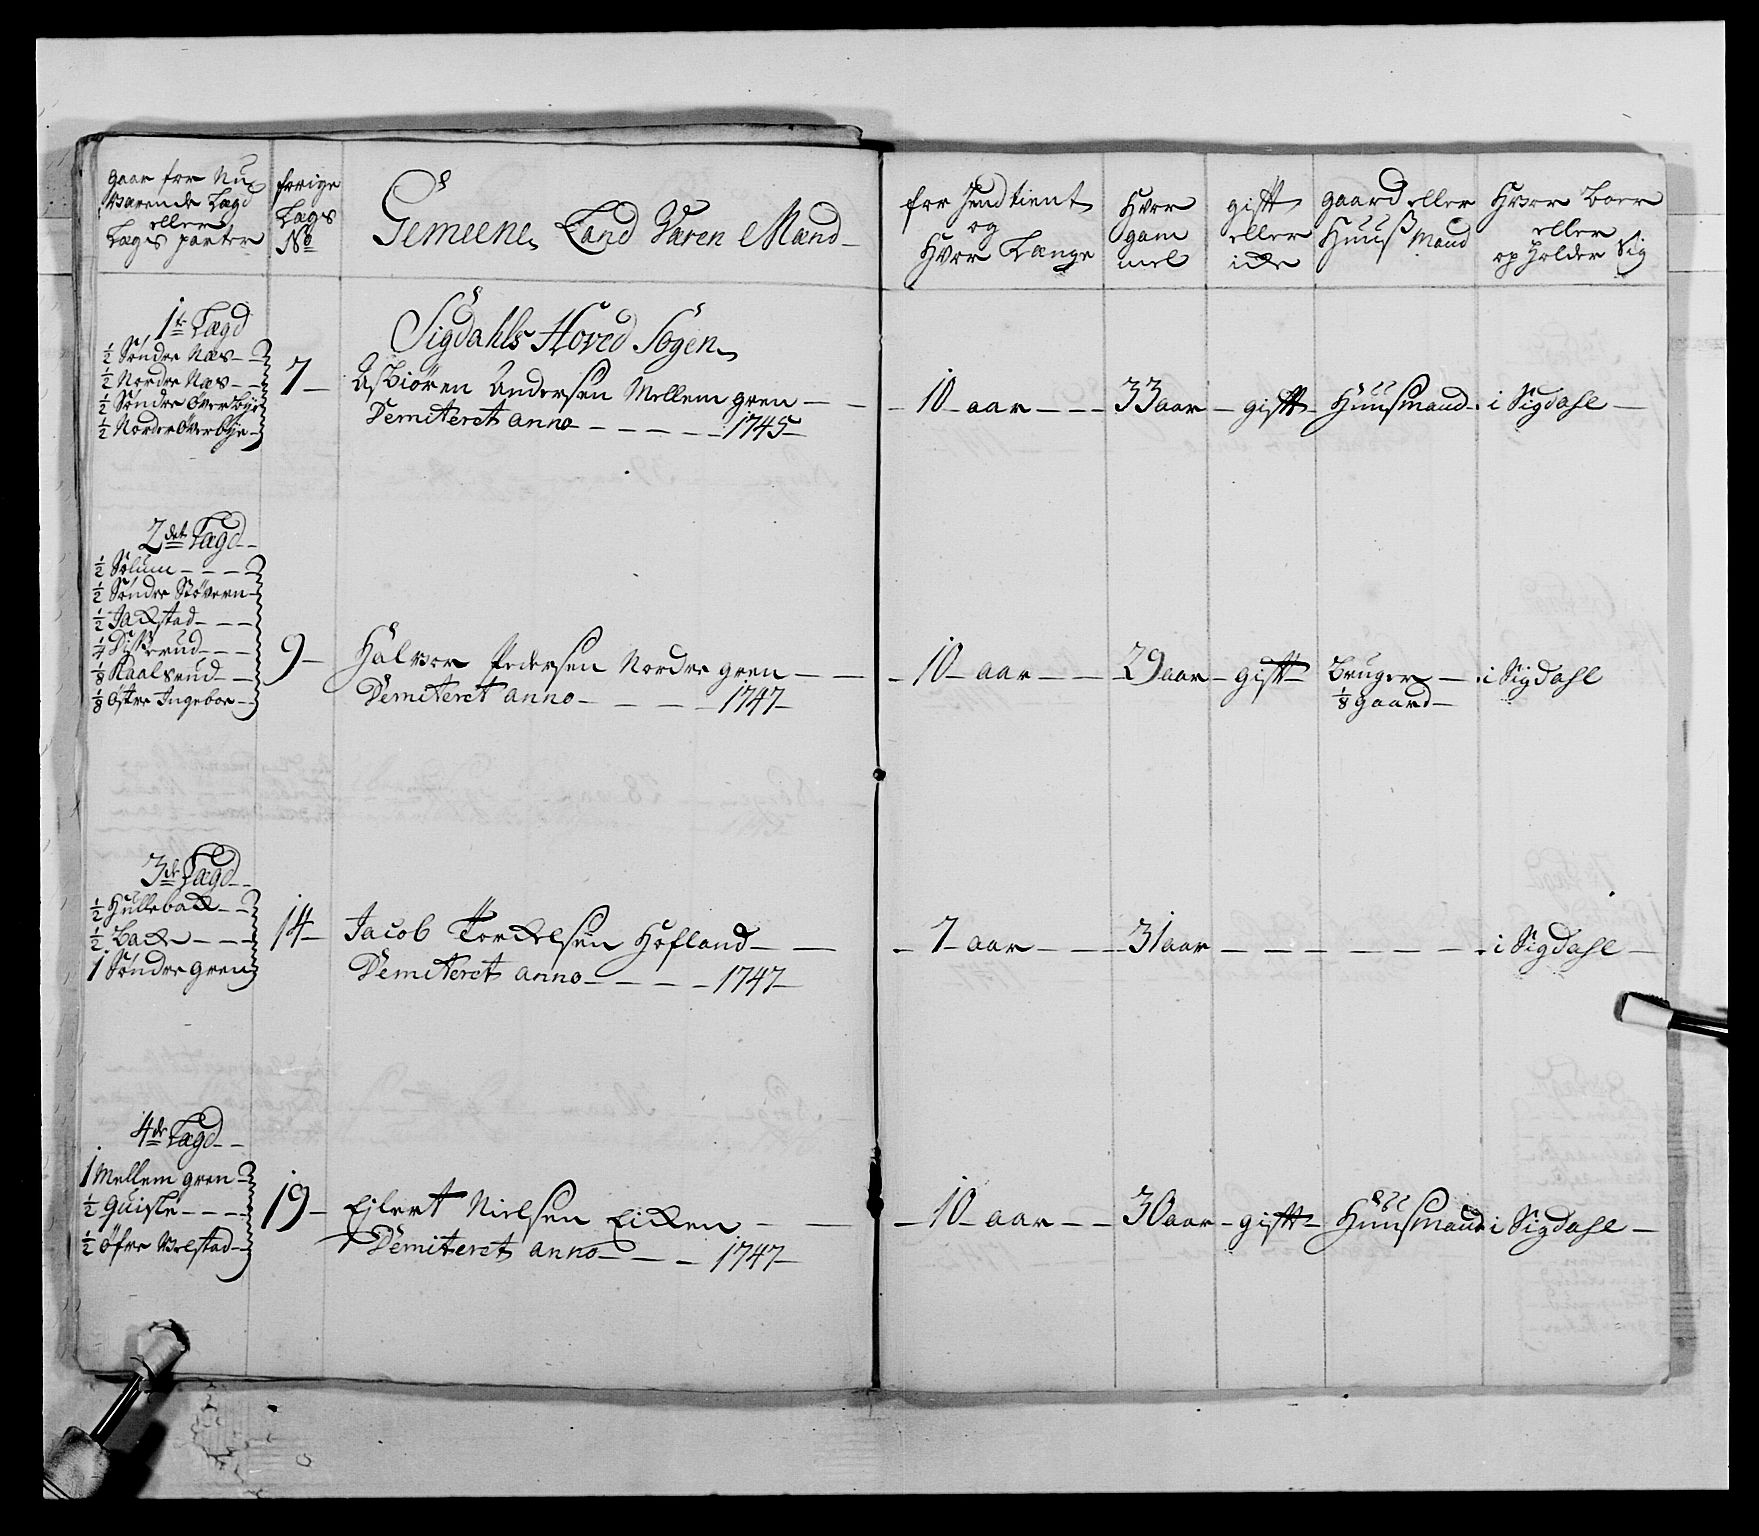 gaar for Nu
værende Lægd
eller
Lægs parter
forige
Lægs
No
Gemeene Land Varen Mænd
for Hendtient
og
Hvor Længe
Hvor
gam
mel
gift
eller
icke
gaard eller
Huusz Mand
Hvor Boer
eller
opholder Sig
1te Lægd
Sigdahls Hoved Sogen
½ Søndre Næs
½ Nordre Næs
½ Søndre Øverbye
½ Nordre Øverbye
7 Asbiören Andersen Mellem gren
Demiteret anno 1745
10 aar 33 aar gift Huusmand i Sigdahl
2det Lægd
½ Solum
½ Søndre Støvern
½ Jackstad
¼ Disserud
⅛ Kaalsrud
⅛ Østre Ingeboe
9 Halvor Pedersen Nordre gren
Demiteret anno 1747
10 aar 29 aar gift Bruger i Sigdahl
⅛ gaard
3de Lægd
½ Hulleback
½ Back
1 Søndre gren
14 Jacob Torckelsen Hofland
Demiteret anno 1747
7 aar 31 aar i Sigdahl
4de Lægd
1 Mellem gren
½ Quisle
½ Øfre Velstad
19 Ejlert Nielsen Eicken
Demiteret anno 1747
10 aar 30 aar gift Huusmand i Sigdahl